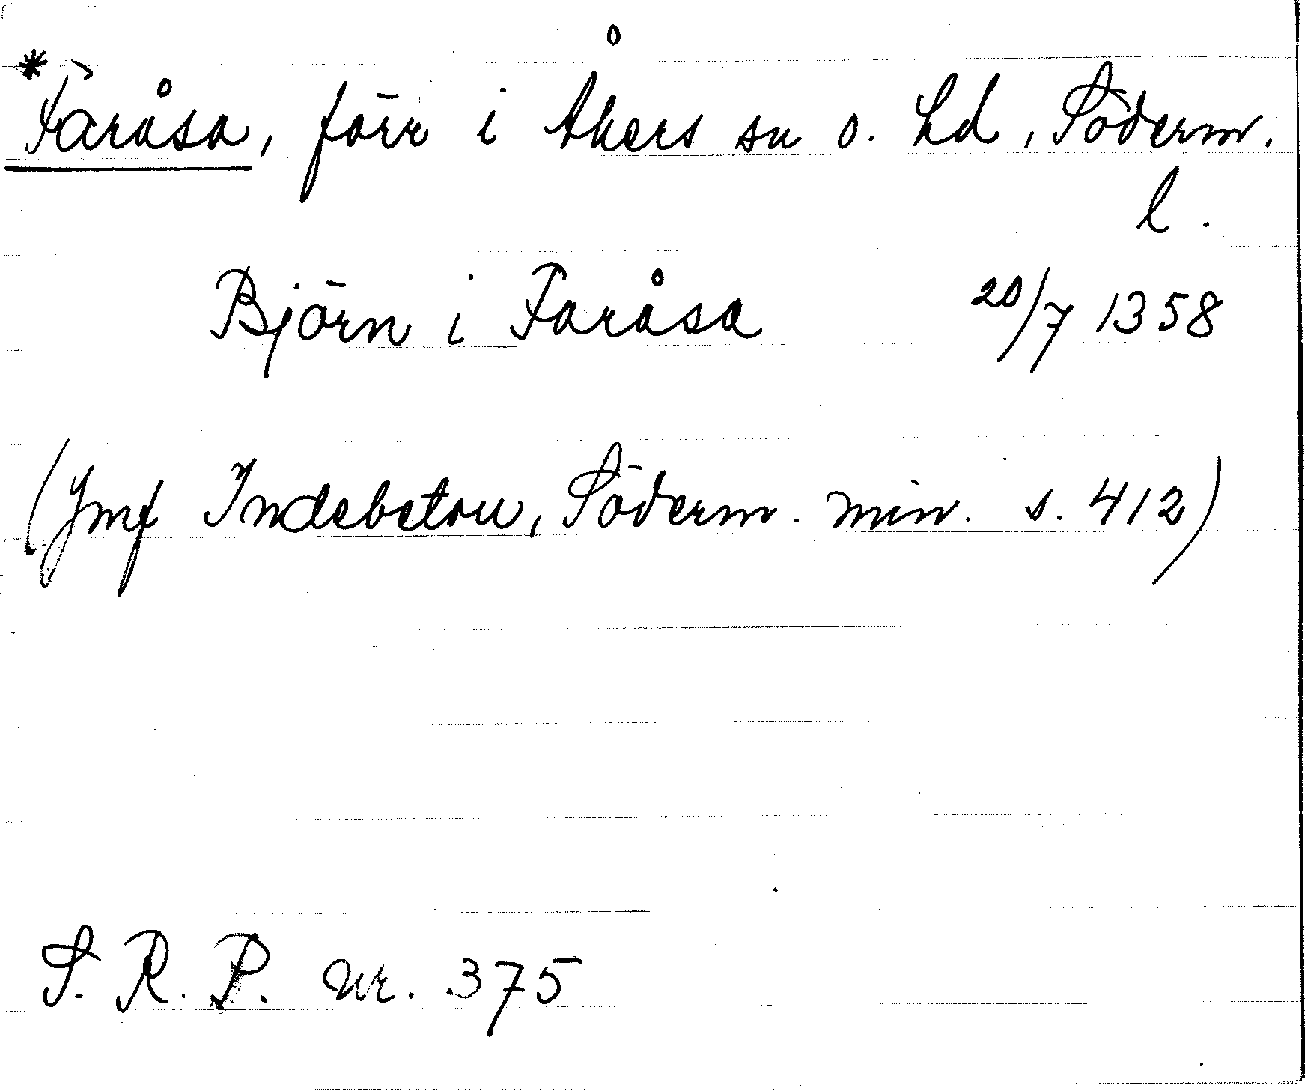 *Faråsa, förr i Åkers sn o. hd, Söderm.
l.
Björn i Faråsa 20/7 1358
(Jmf Indebetou, Söderm. min. s. 412)
S. R. P. nr. 375